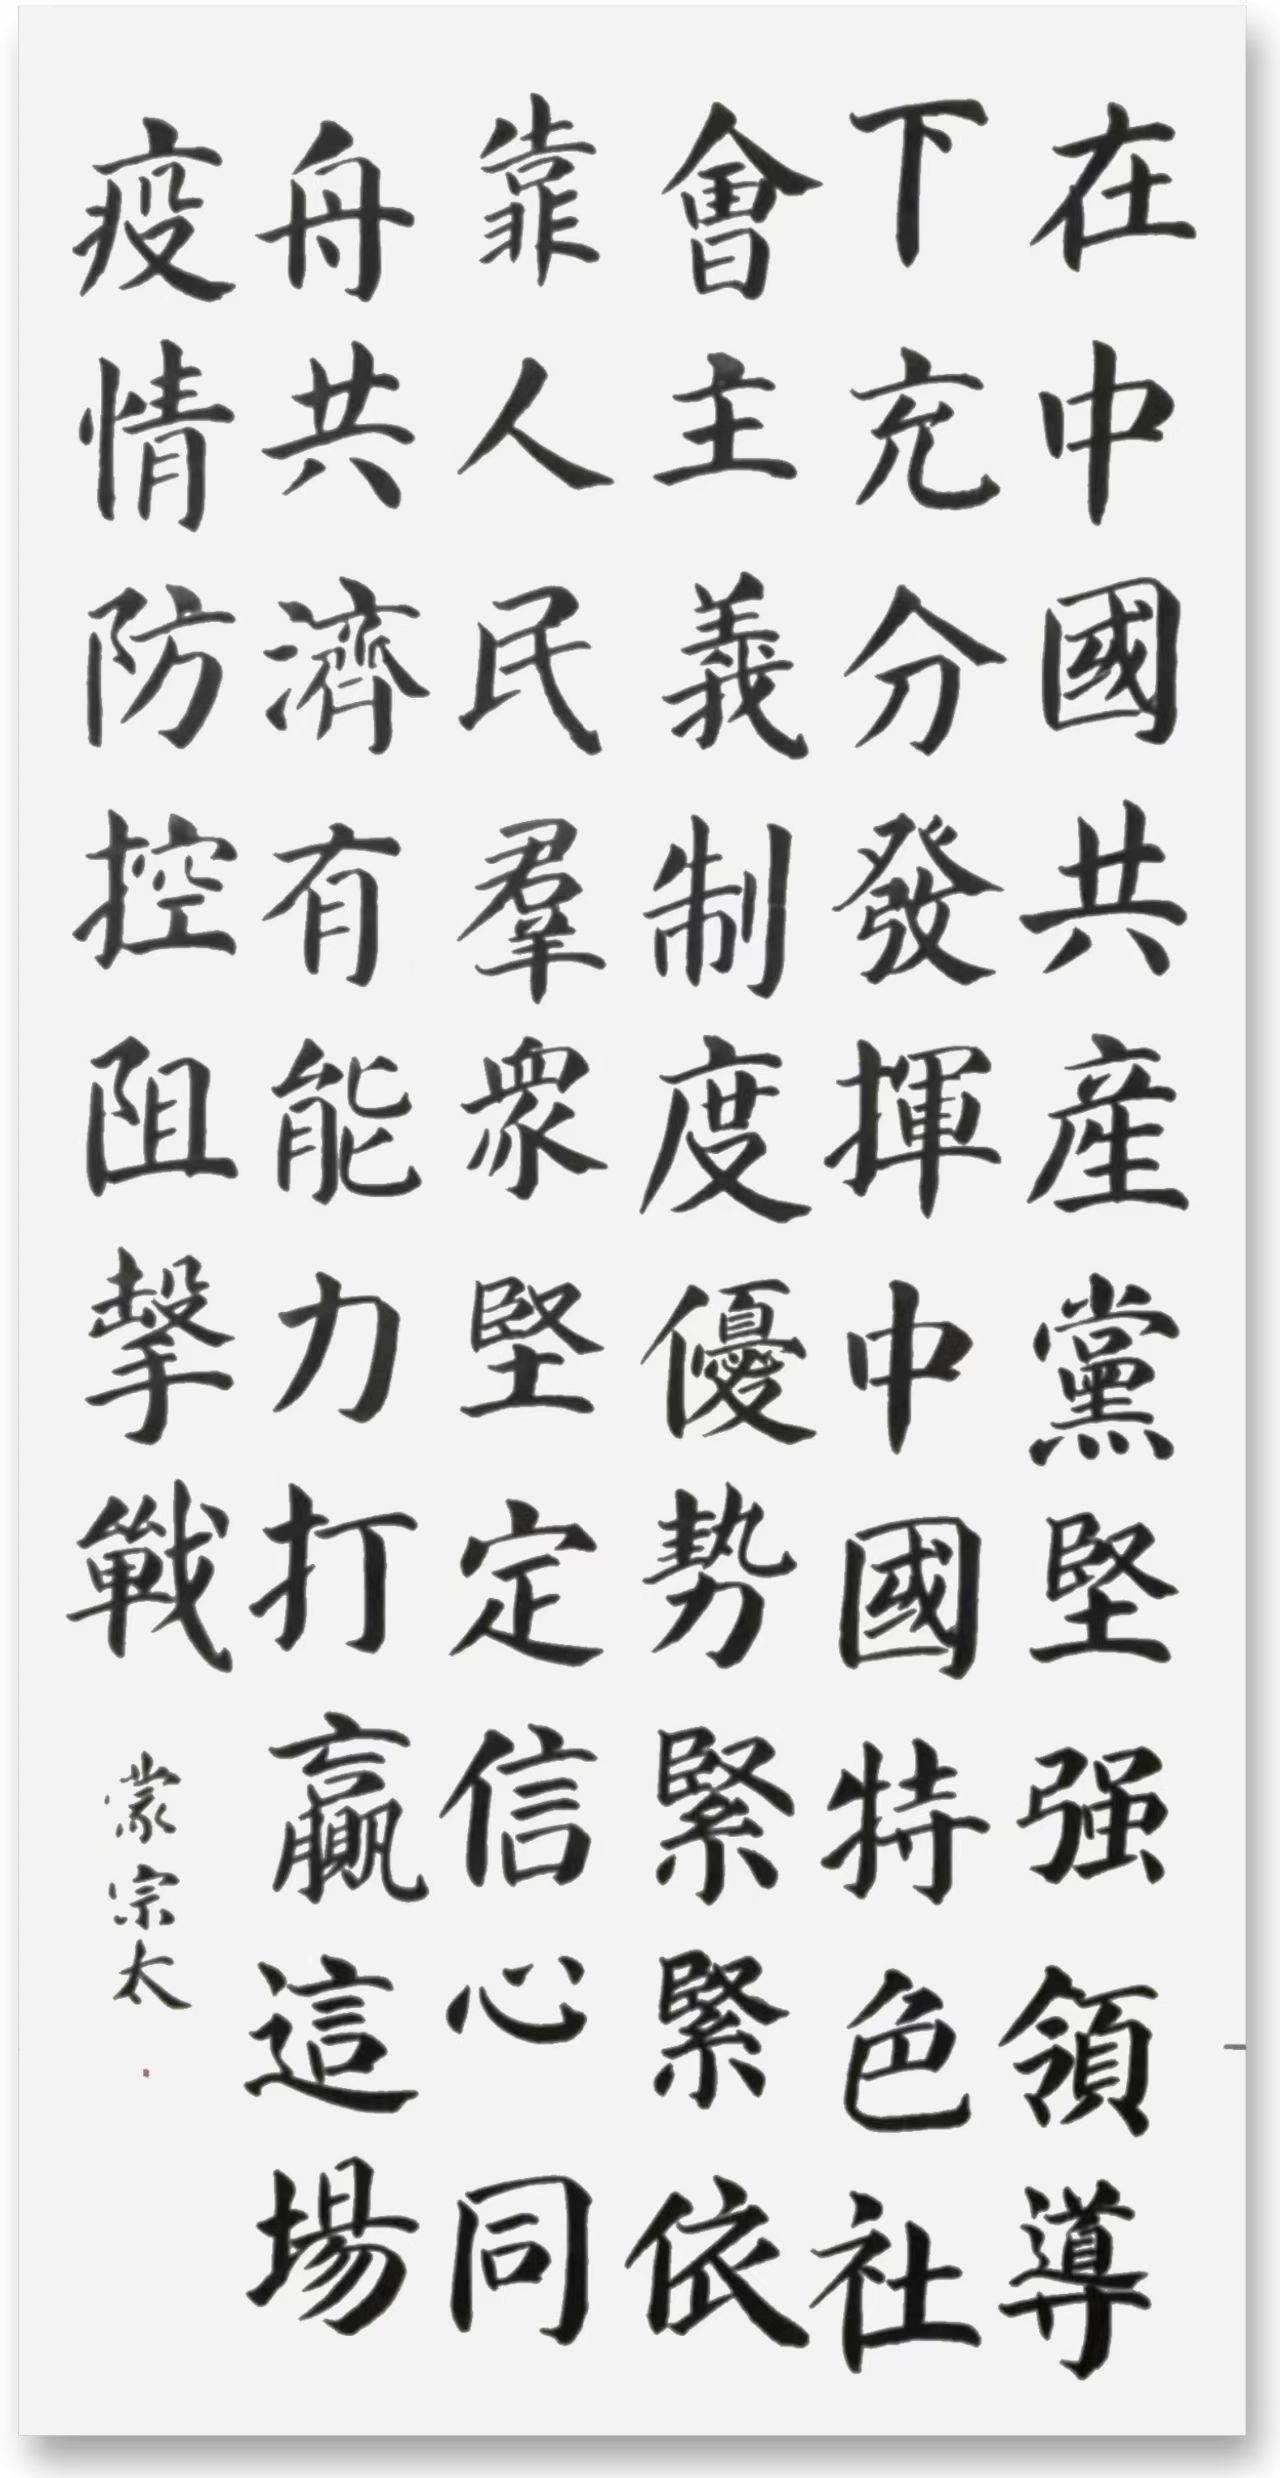 在中國共産黨堅强領導
下充分發揮中國特色社
會主義制度優勢緊緊依
靠人民羣衆堅定信心同
舟共濟有能力打贏這場
疫情防控阻擊戰
蒙宗太